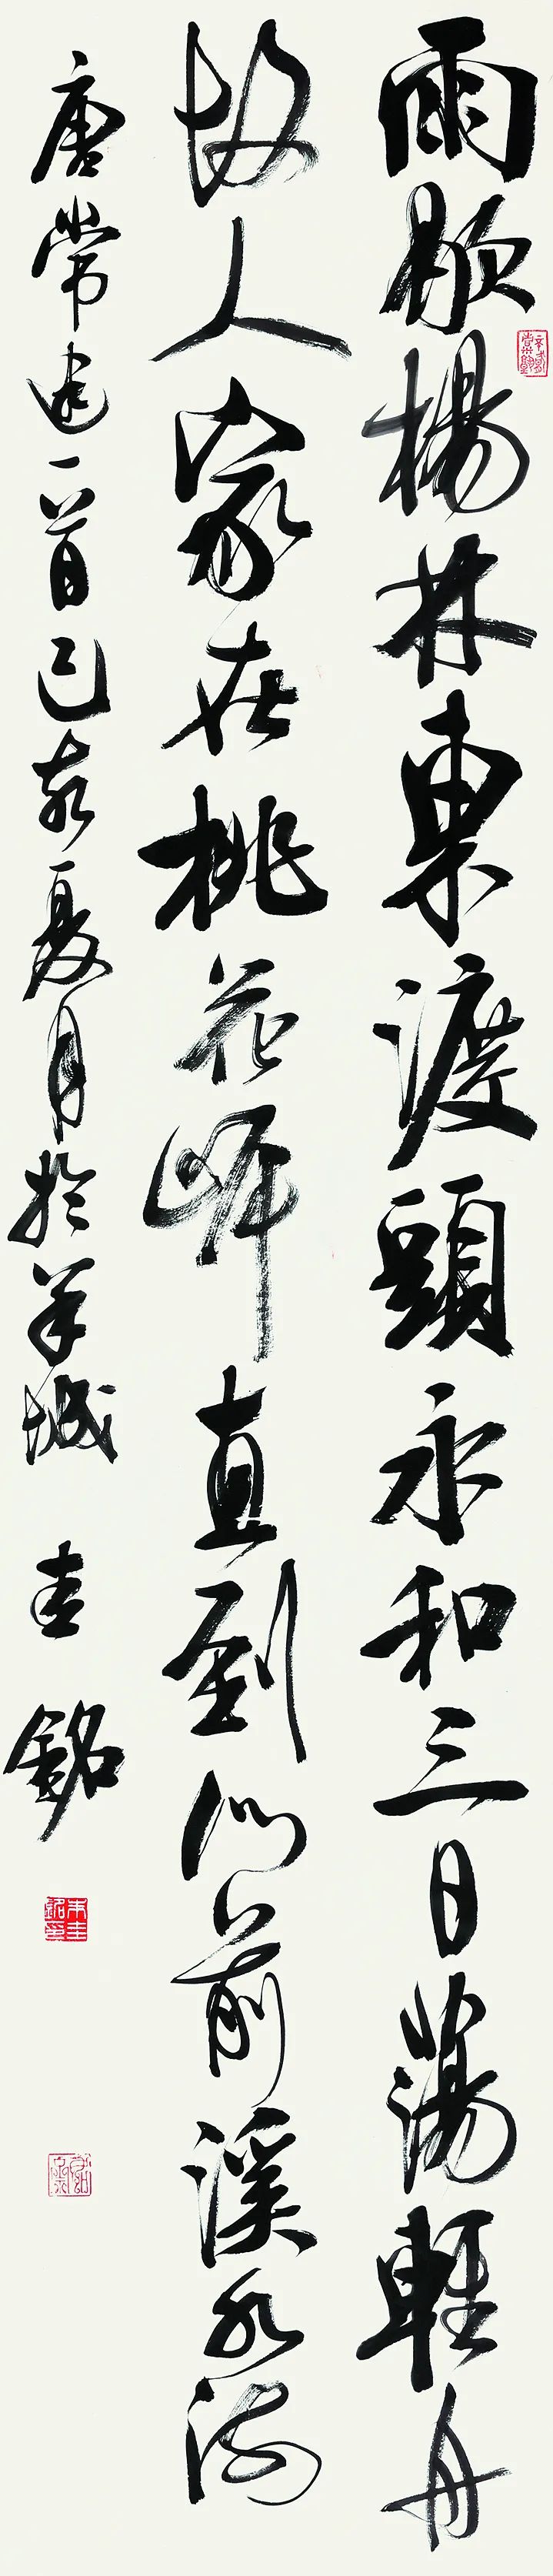 雨歇楊林東渡頭永和三日蕩輕舟
故人家在桃花岸直到門前溪水流
唐常建一首己亥夏月於羊城 圭銘